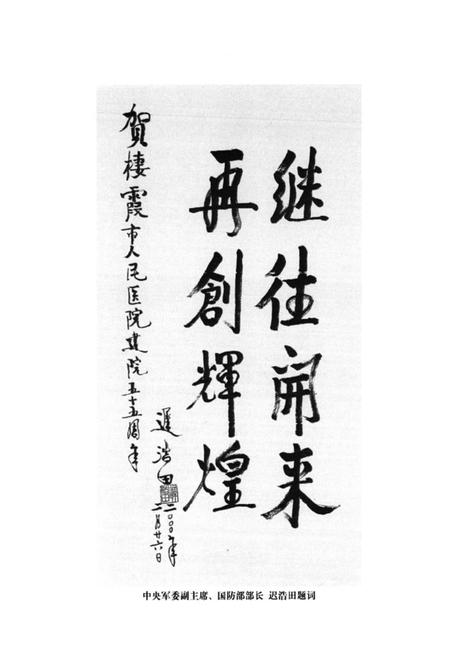 继往開来
再創輝煌
賀棲霞市人民医院建院五十五周年
遲浩田
二〇〇〇年
二月廿六日
中央军委副主席、国防部部长 迟浩田题词